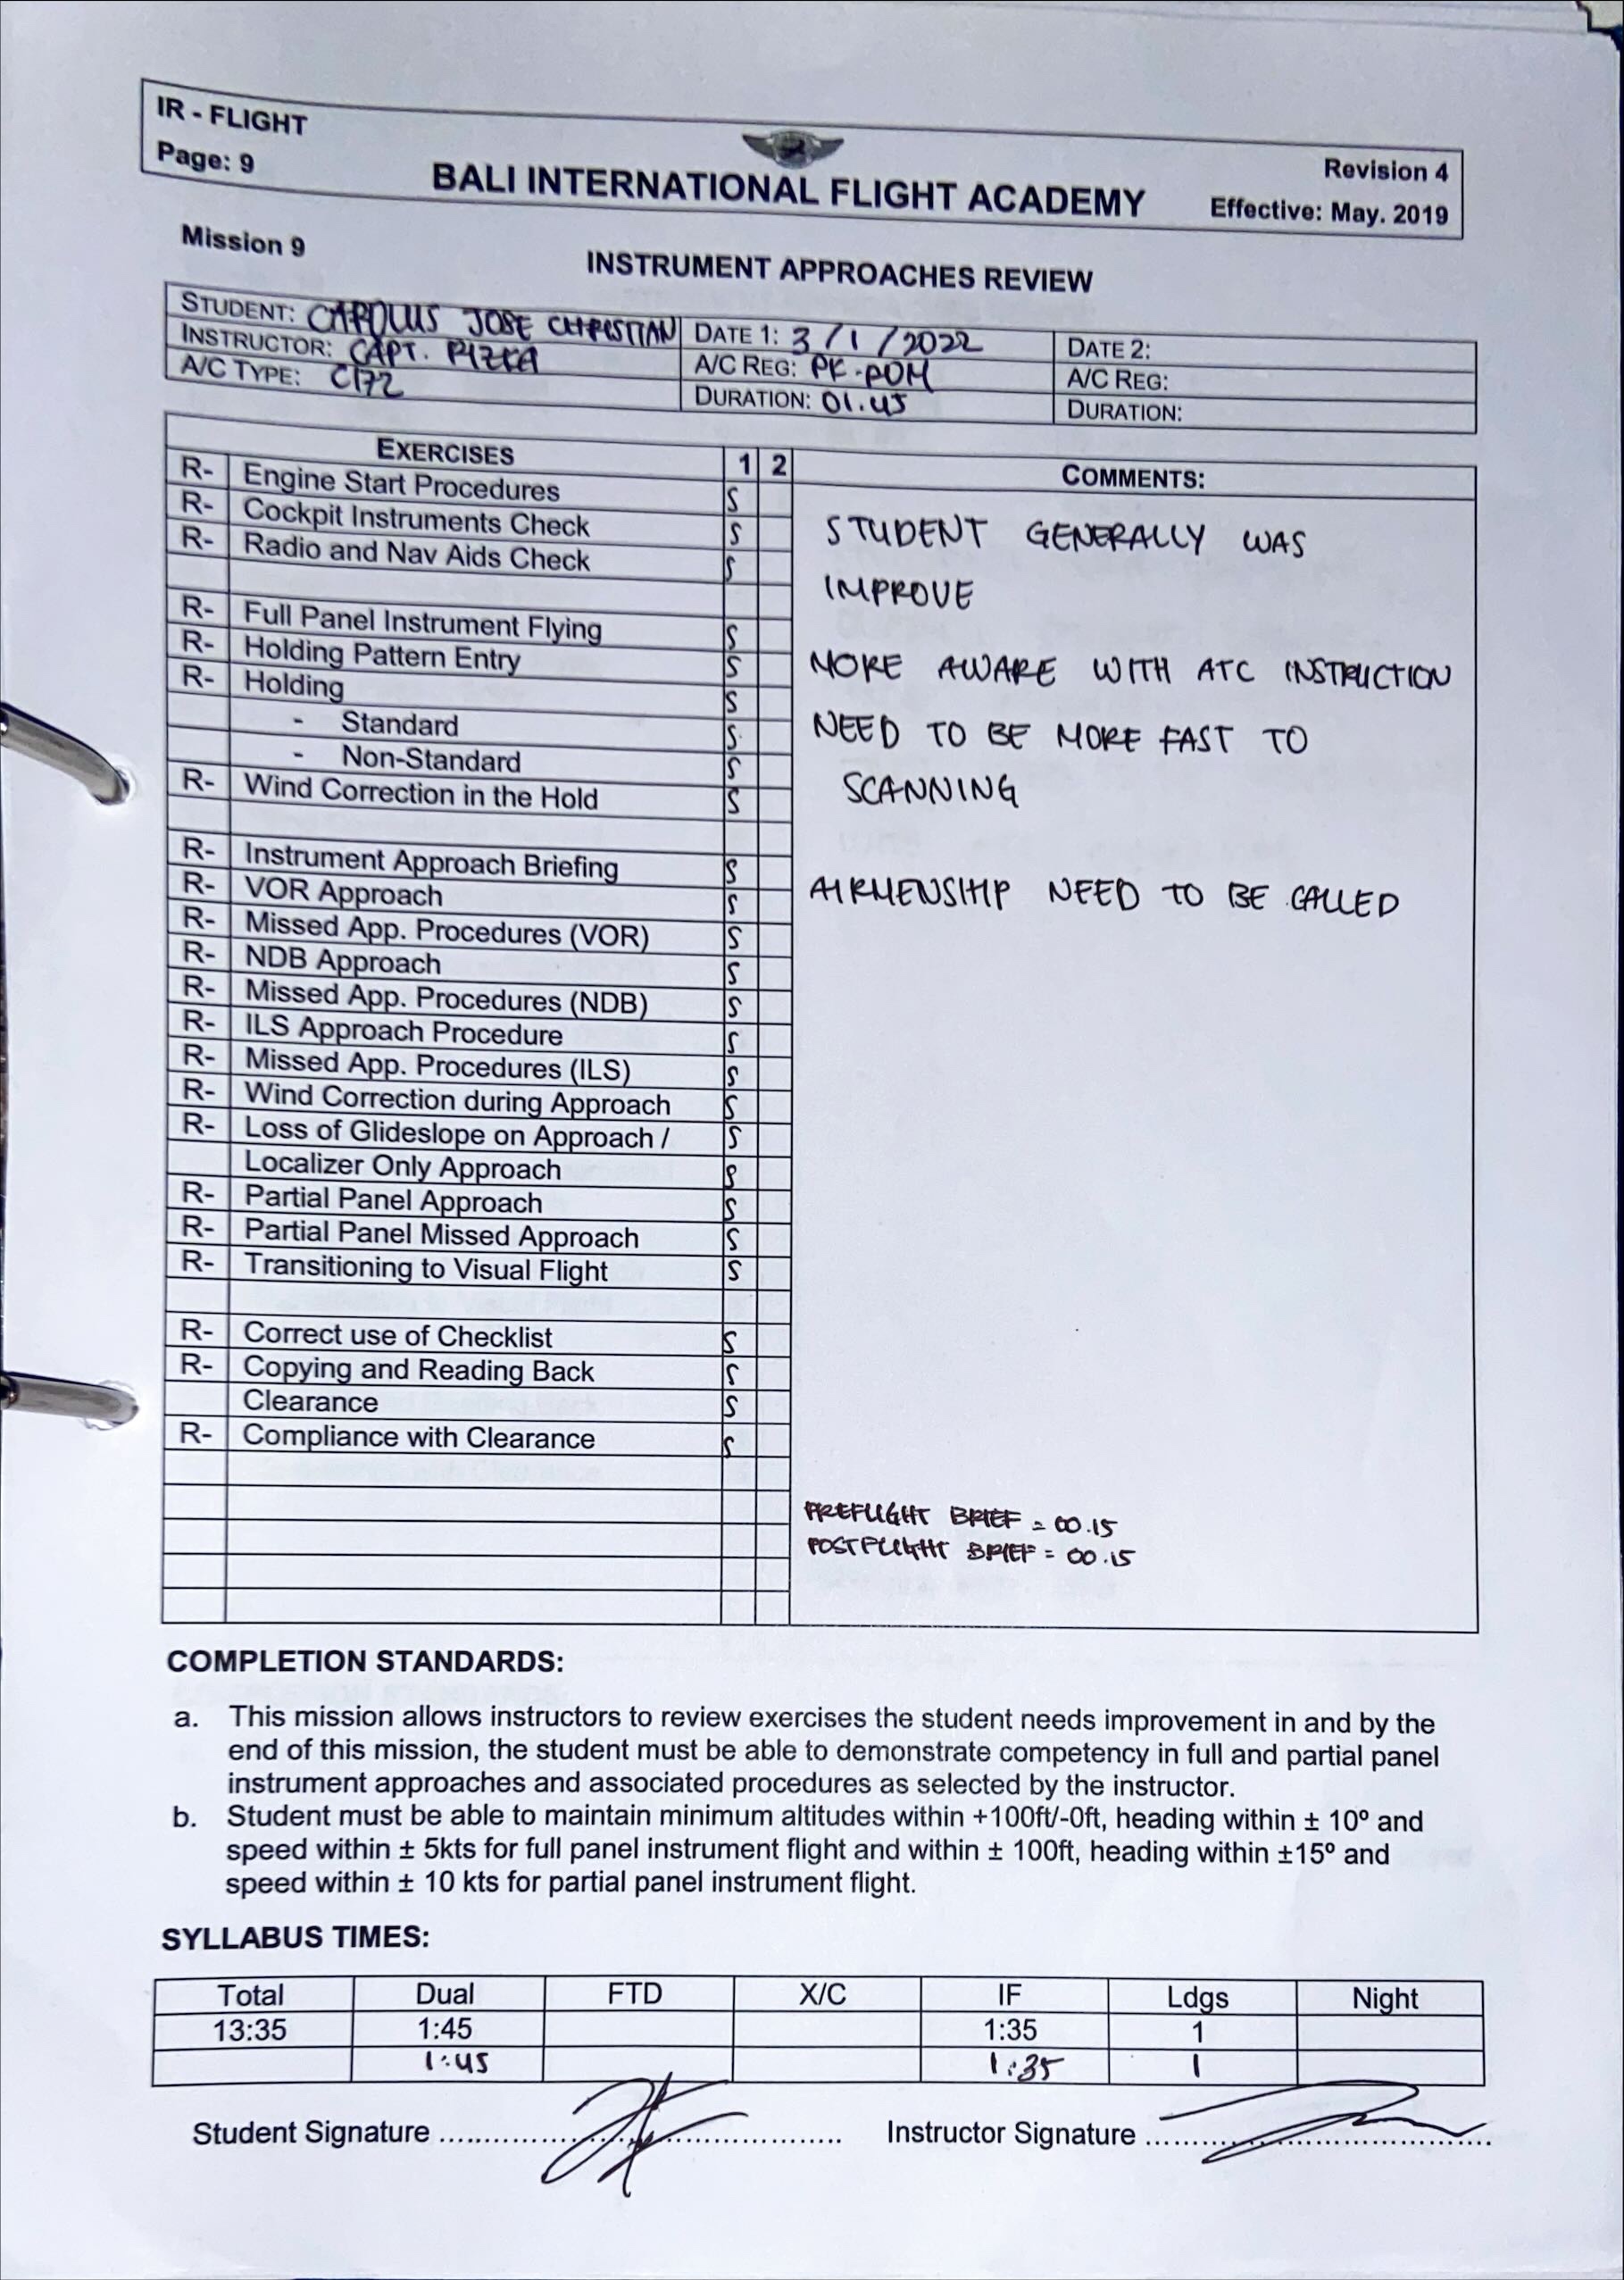 IR - FLIGHT
Page: 9
BALI INTERNATIONAL FLIGHT ACADEMY
Revision 4
Effective: May. 2019
Mission 9
INSTRUMENT APPROACHES REVIEW
STUDENT: CAROLUS JOSE CHRISTIAN DATE 1: 3/1/2022 DATE 2:
INSTRUCTOR: CAPT. RIZKA A/C REG: PK-ROM A/C REG:
A/C TYPE: C172 DURATION: 01.45 DURATION:
EXERCISES 1 2
R- Engine Start Procedures S
R- Cockpit Instruments Check S
R- Radio and Nav Aids Check S
R- Full Panel Instrument Flying S
R- Holding Pattern Entry S
R- Holding S
- Standard S
- Non-Standard S
R- Wind Correction in the Hold S
R- Instrument Approach Briefing S
R- VOR Approach S
R- Missed App. Procedures (VOR) S
R- NDB Approach S
R- Missed App. Procedures (NDB) S
R- ILS Approach Procedure S
R- Missed App. Procedures (ILS) S
R- Wind Correction during Approach S
R- Loss of Glideslope on Approach / S
Localizer Only Approach S
R- Partial Panel Approach S
R- Partial Panel Missed Approach S
R- Transitioning to Visual Flight S
R- Correct use of Checklist S
R- Copying and Reading Back S
Clearance S
R- Compliance with Clearance S
COMMENTS:
STUDENT GENERALLY WAS
IMPROVE
MORE AWARE WITH ATC INSTRUCTION
NEED TO BE MORE FAST TO
SCANNING
AIRMENSHIP NEED TO BE CALLED
PREFLIGHT BRIEF = 00.15
POSTFLIGHT BRIEF = 00.15
COMPLETION STANDARDS:
a. This mission allows instructors to review exercises the student needs improvement in and by the
end of this mission, the student must be able to demonstrate competency in full and partial panel
instrument approaches and associated procedures as selected by the instructor.
b. Student must be able to maintain minimum altitudes within +100ft/-0ft, heading within ± 10º and
speed within ± 5kts for full panel instrument flight and within ± 100ft, heading within ±15º and
speed within ± 10 kts for partial panel instrument flight.
SYLLABUS TIMES:
Total Dual FTD X/C IF Ldgs Night
13:35 1:45 1:35 1
1:45 1:35 1
Student Signature .......... Instructor Signature ..........